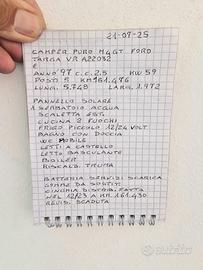 21-07-25
CAMPER PURO M4GT FORD
TARGA VR A22032
E
ANNO '97 C.C. 2.5 KW 59
POSTI 5 KM 161.476
LUNG. 5.748 LARG. 1.972
PANNELLO SOLARE
1 SERBATOIO ACQUA
SCALETTA EST.
CUCINA 2 FUOCHI
FRIGO PICCOLO 12/24 VOLT
BAGNO CON DOCCIA
WC MOBILE
LETTI A CASTELLO
LETTO BASCULANTE
BOILER
RISCALD. TRUMA
BATTERIA SERVIZI SCARICA
GOMME DA SOSTIT.
CINGHIA DISTRIB. FATTA
NEL 12/23 A KM. 161.430
REVIS. SCADUTA
subito